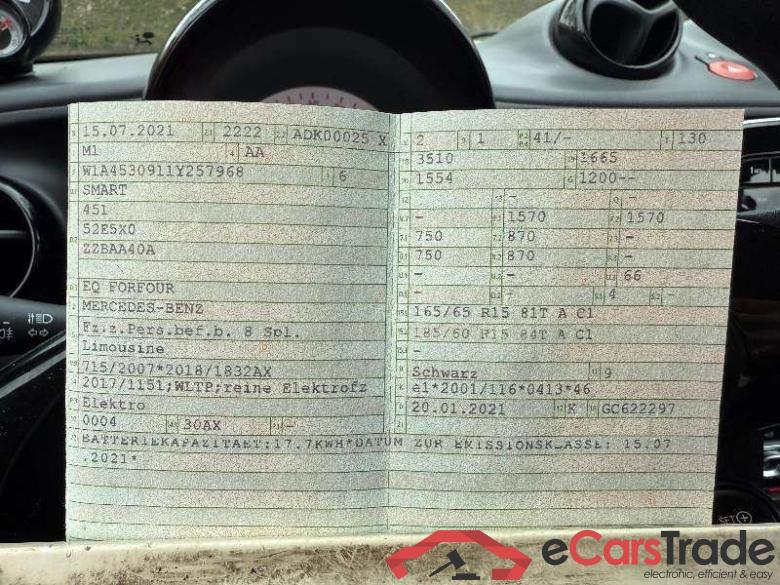 15.07.2021 2222 ADK00025 X
M1 AA
W1A4530911Y257968 6
SMART
451
52E5X0
ZZBAA40A
EQ FORFOUR
MERCEDES-BENZ
Fz.z.Pers.bef.b. 8 Spl.
Limousine
715/2007*2018/1832AX
2017/1151;WLTP;reine Elektrofz
Elektro
0004 30AX -
2 1 41/- 130
3510 1665
1554 1200--
- -
- 1570 1570
750 870 -
750 870 -
- - 66
- - 4 -
165/65 R15 81T A C1
185/60 R15 84T A C1
-
Schwarz 9
e1*2001/116*0413*46
20.01.2021 K GC622297
BATTERIEKAPAZITAET:17.7KWH*DATUM ZUR EMISSIONSKLASSE: 15.07
.2021*
SET
eCarsTrade
electronic, efficient & easy